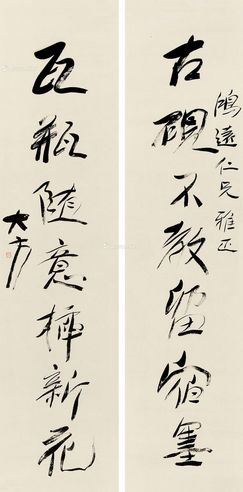 鴻遠仁兄雅正
古硯不教留宿墨
瓦瓶隨意插新花
大方